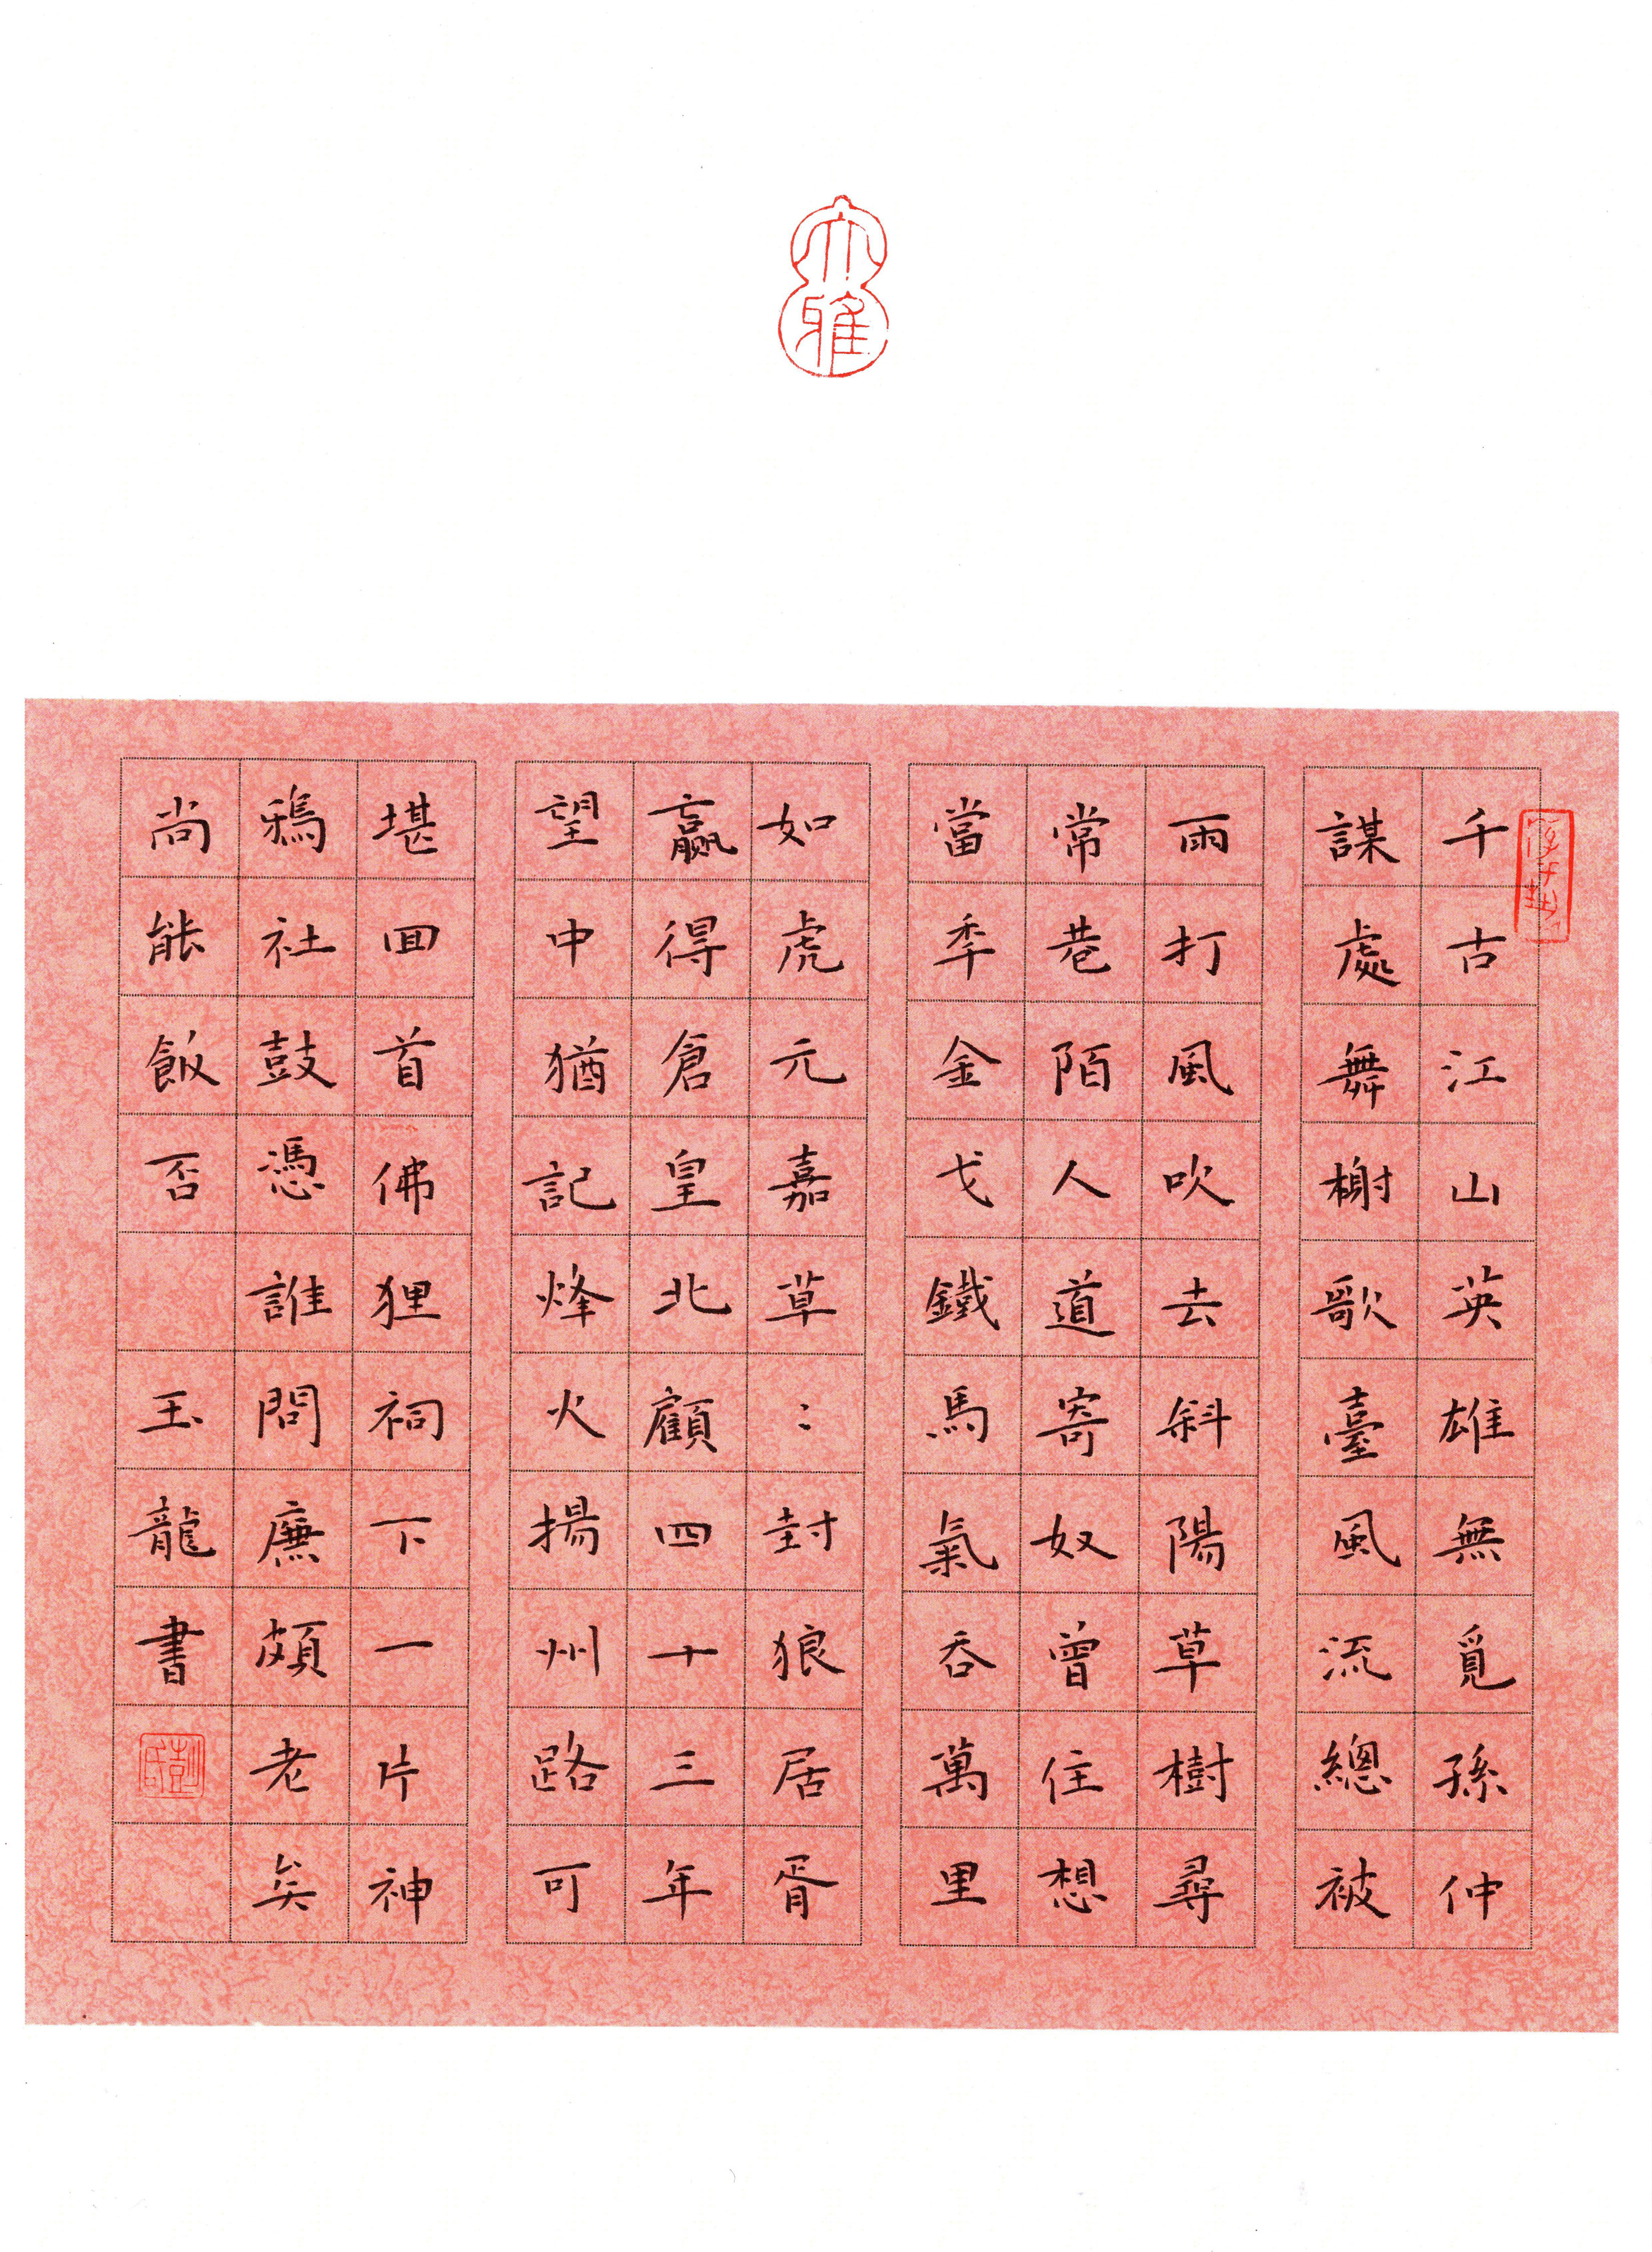 大雅
千古江山英雄無覓孫仲
謀處舞榭歌臺風流總被
雨打風吹去斜陽草樹尋
常巷陌人道寄奴曾住想
當季金戈鐵馬氣吞萬里
如虎元嘉草:封狼居胥
贏得倉皇北顧四十三年
望中猶記烽火揚州路可
堪回首佛狸祠下一片神
鴉社鼓憑誰問廉頗老矣
尚能飯否 玉龍書
彭氏